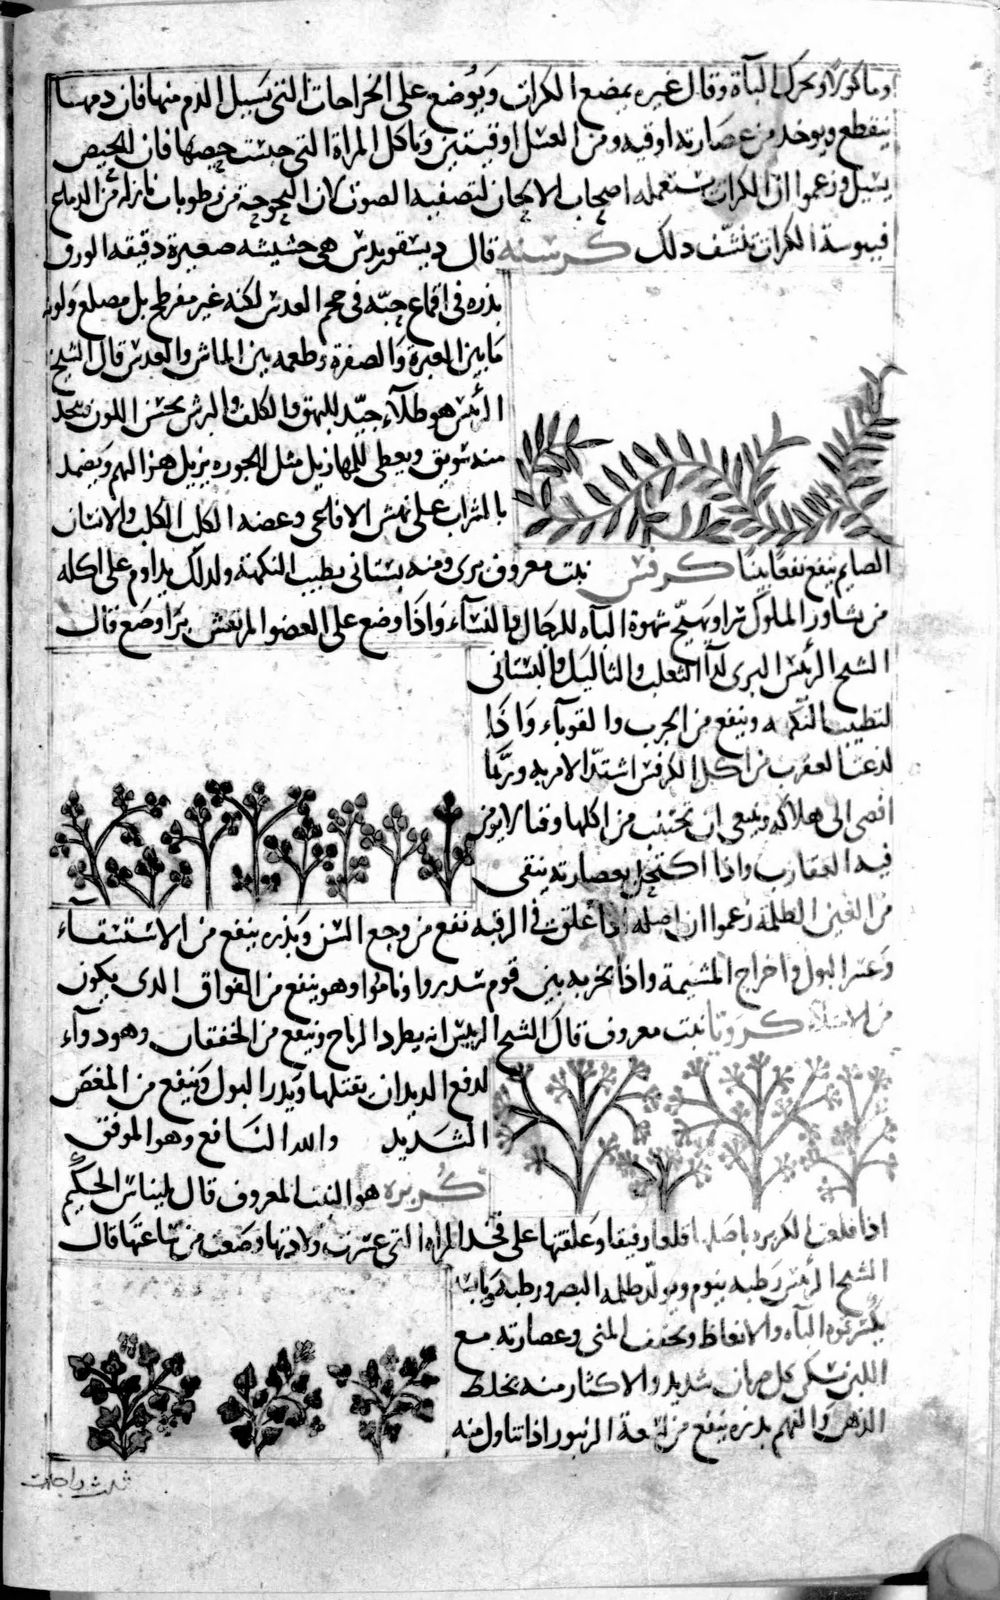 وماكولا ويحرك الباة وقال غيره يمضغ الكراث ويوضع على الجراحات التى يسيل الدم منها فان دمها
ينقطع ويوخذ من عصارته اوقيه ومن العسل اوقيتين وتاكل المراة التى حبست حيضها فان الحيض
يسيل وزعموا ان الكراث يستعمله اصحاب الالحان لتصفيه الصوت لان البحوحة من رطوبات نازلة من الدماغ
فيبوسة الكراث تنشف ذلك كرسنه قال ديسقوريدس هى حشيشه صغيرة دقيقه الورق
بذره فى اقماع حبّه فى حجم العدس لكنه غير مفرطح بل مضلع ولونه
ما بين الغبرة والصفرة وطعمه بين الماش والعدس قال الشيخ
الرئيس هو طلاء جيّد للبهق والكلف والبرش يحسن اللون يتخذ
منه سويق ويعطى للمهازيل مثل الجوزه يزيل هزالهم ويضمد
بالشراب على نهش الافاعى وعضه الكلب الكلب والانسان
الصايم ينفع نفعا بينا كرفس نبت معروف برى ومنه بستانى يطيب النكهة ولذلك يداوم على اكله
من يشاور الملوك سرا ويهيّج شهوة الباه للرجال والنساء واذا وضع على العضو المرتعش برا وضع قال
الشيخ الرئيس البرى لداء الثعلب والثاليل والبستانى
لتطييب النكهه وينفع من الجرب والقوباء واذا
لدغت العقرب من اكل الكرفس اشتدّ الامر به وربّما
افضى الى هلاكه وينبغى ان يجتنب من اكلها وقتا لا يومن
فيه العقارب واذا اكتحل بعصارته ينقى
من العين الظلمة زعموا ان اصله اذا علقت فى الرقبه نفع من وجع السن وبذره ينفع من الاستسقاء
وعسر البول واخراج المشيمة واذا بخر به بين قوم سدروا وناموا وهو ينفع من الفواق الذى يكون
من الامتلاء كرويا نبت معروف قال الشيخ الرئيس انه يطرد الرياح وينفع من الخفقان وهو دواء
لدفع الديدان يقتلها ويدر البول وينفع من المغص
الشديد والله النافع وهو الموفق
كزبره هو النبت المعروف قال بليناس الحكيم
اذا قلعت الكزبره باصلها قلعا رفيقا وعلقتها على فخذ المراه التى عسرت ولادتها وضعت من ساعتها قال
الشيخ الرئيس رطبه ينوم ويولد ظلمه البصر ورطبه ويابسه
يكسر قوه الباه والانعاظ ويجفف المنى وعصارته مع
اللبن تسكن كل ضربان شديد والاكثار منه يخلط
الذهن والفهم بذره ينفع من لسعة الزنبور اذا تناول منه